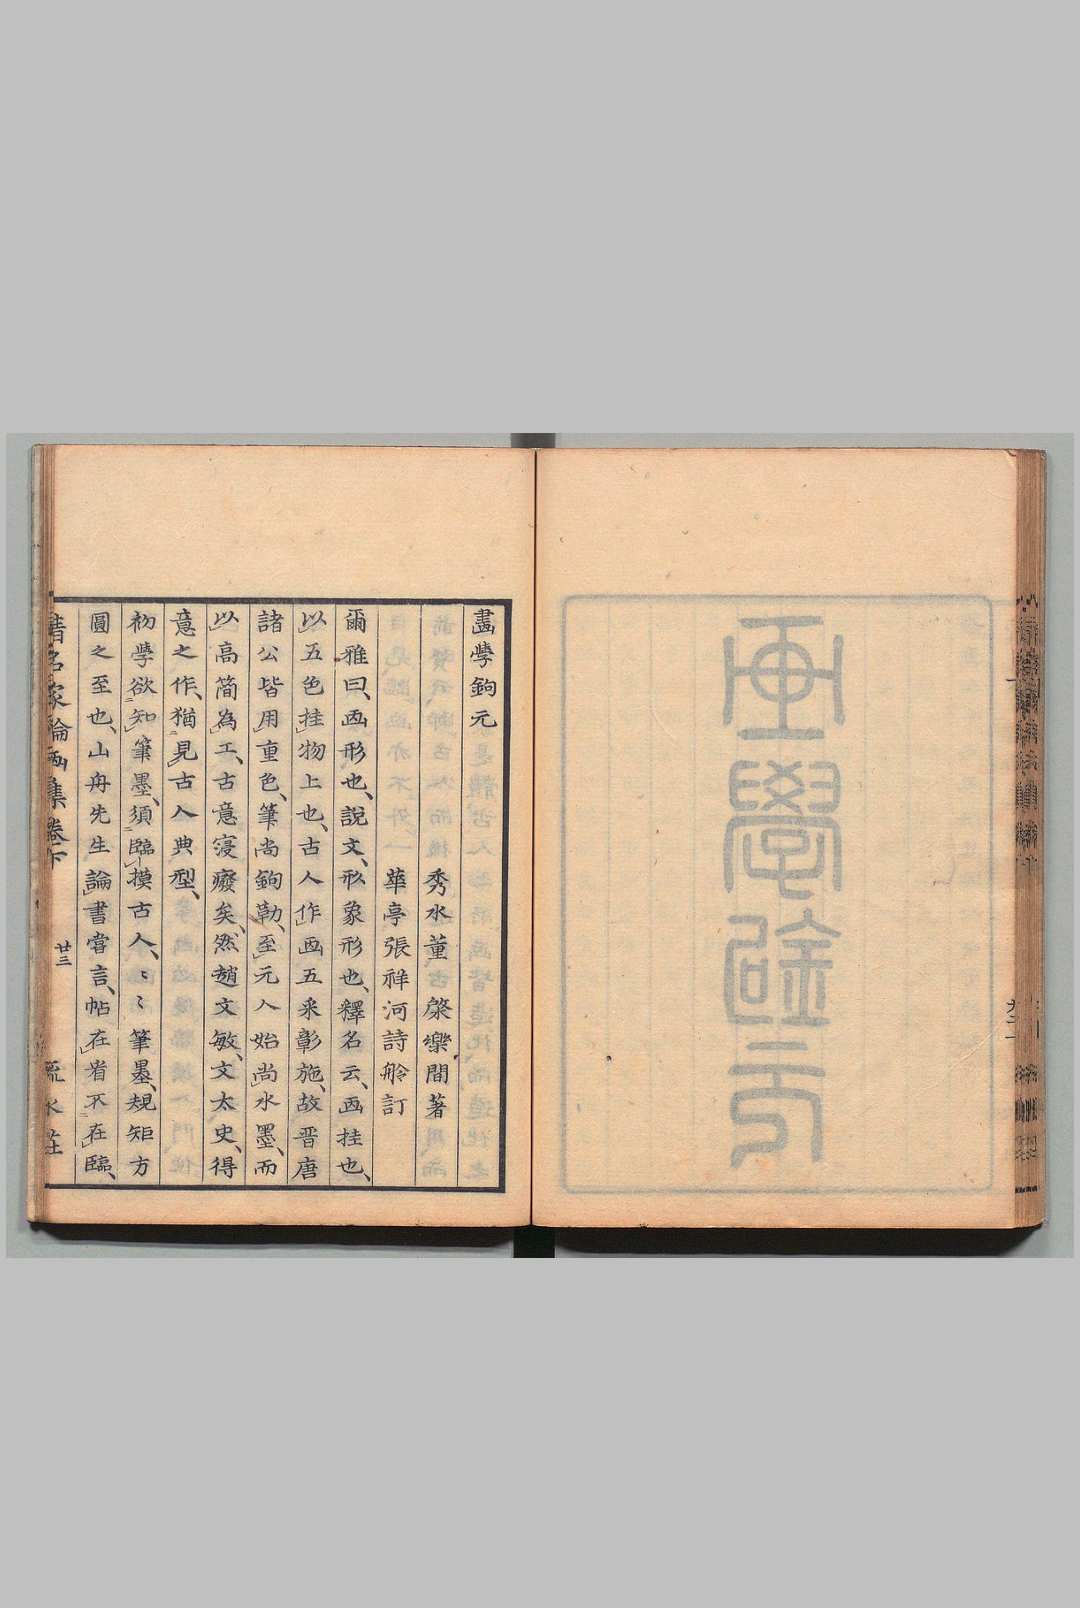 畫學鉤元
秀水董棨樂間著
華亭張祥河詩舲訂
爾雅曰、画形也、說文、形象形也、釋名云、画挂也、
以五色挂物上也、古人作画五采彰施、故晋唐
諸公皆用重色、筆尚鉤勒、至元人始尚水墨、而
以高簡為工、古意寖癈矣、然趙文敏、文太史、得
意之作、猶見古人典型、
初學欲知筆墨、須臨摸古人、〻〻筆墨、規矩方
圓之至也、山舟先生論書嘗言、帖在看不在臨、
名家論画集卷下
廿三
流水莊